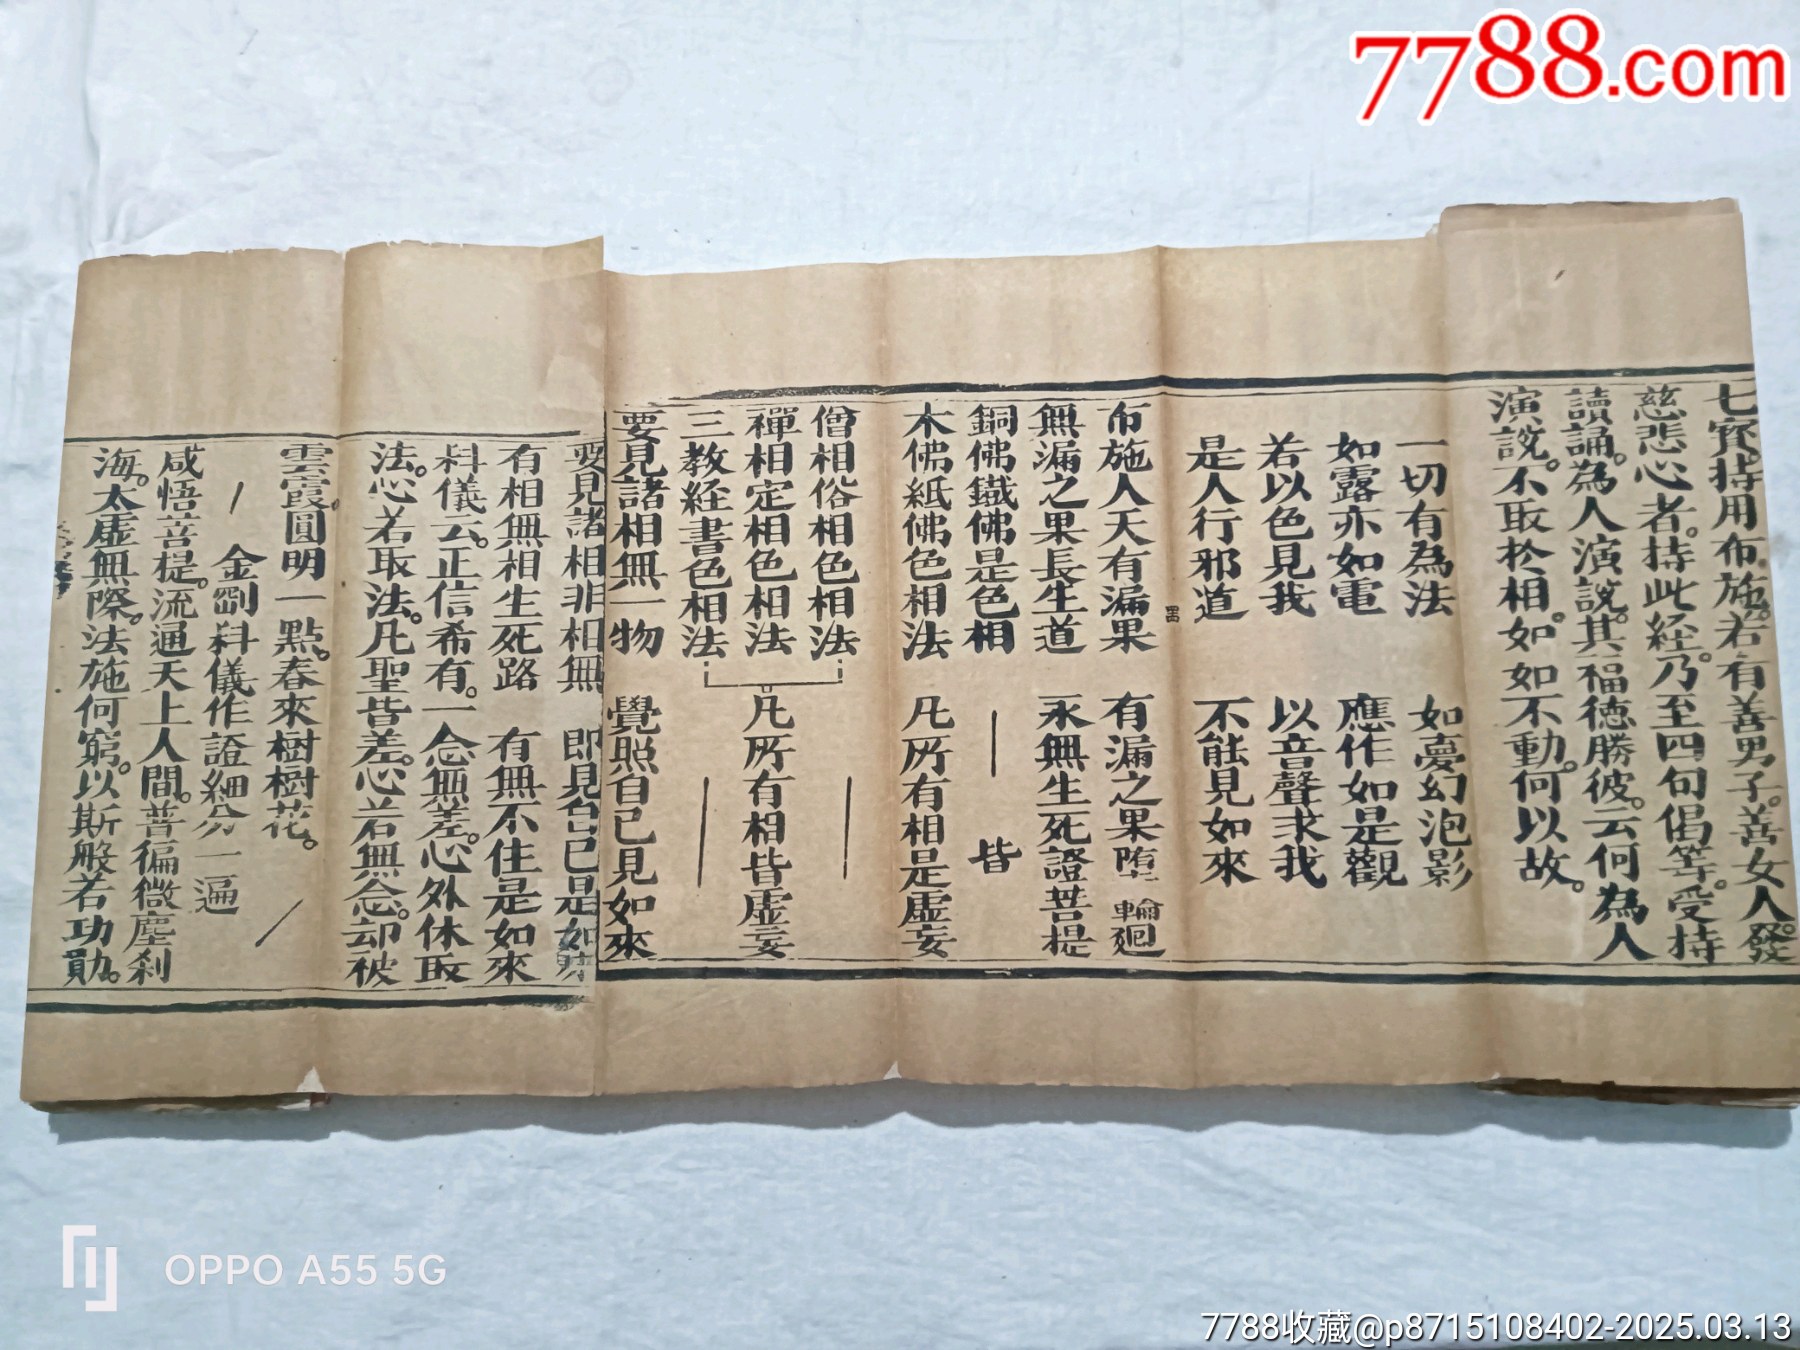 7788.com
七寶持用布施。若有善男子。善女人。發
慈悲心者。持此經。乃至四句偈等。受持
讀誦。為人演說。其福德勝彼。云何為人
演說。不取於相。如如不動。何以故。
一切有為法 如夢幻泡影
如露亦如電 應作如是觀
若以色見我 以音聲求我
是人行邪道 不能見如來
布施人天有漏果 有漏之果堕輪廻
無漏之果長生道 永無生死證菩提
銅佛鐵佛是色相 皆
木佛紙佛色相法 凡所有相是虛妄
僧相俗相色相法
禪相定相色相法 凡所有相皆虛妄
三教経書色相法
要見諸相無一物 覺照自己見如來
要見諸相非相無 即見自己是如
有相無相生死路 有無不住是如來
科儀云。正信希有。一念無差。心外休取
法。心若取法。凡聖皆差。心若無念。却被
雲霞圓明一點。春來樹樹花。
金剛科儀作證細分一遍
咸悟菩提。流通天上人間。普徧微塵刹
海。太虛無際。法施何窮。以斯般若功勛。
OPPO A55 5G
7788收藏@p8715108402-2025.03.13